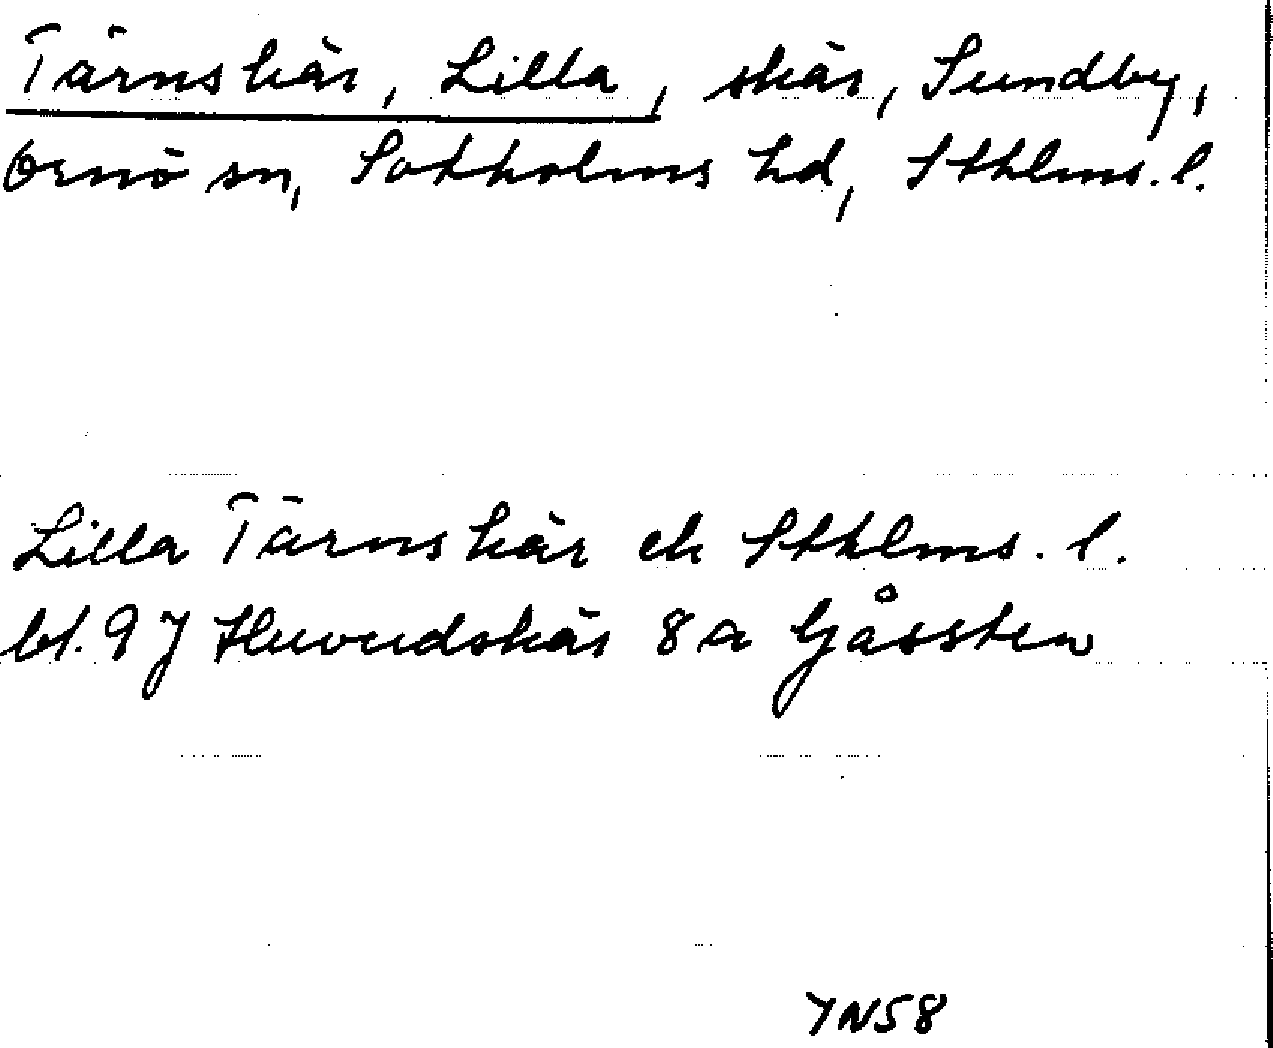 Tärnskär, Lilla, skär, Sundby,
Ornö sn, Sotholms hd, Sthlms. l.
Lilla Tärnskär ek Sthlms. l.
bl. 9 J Huvudskär 8 a Gåssten
YN58